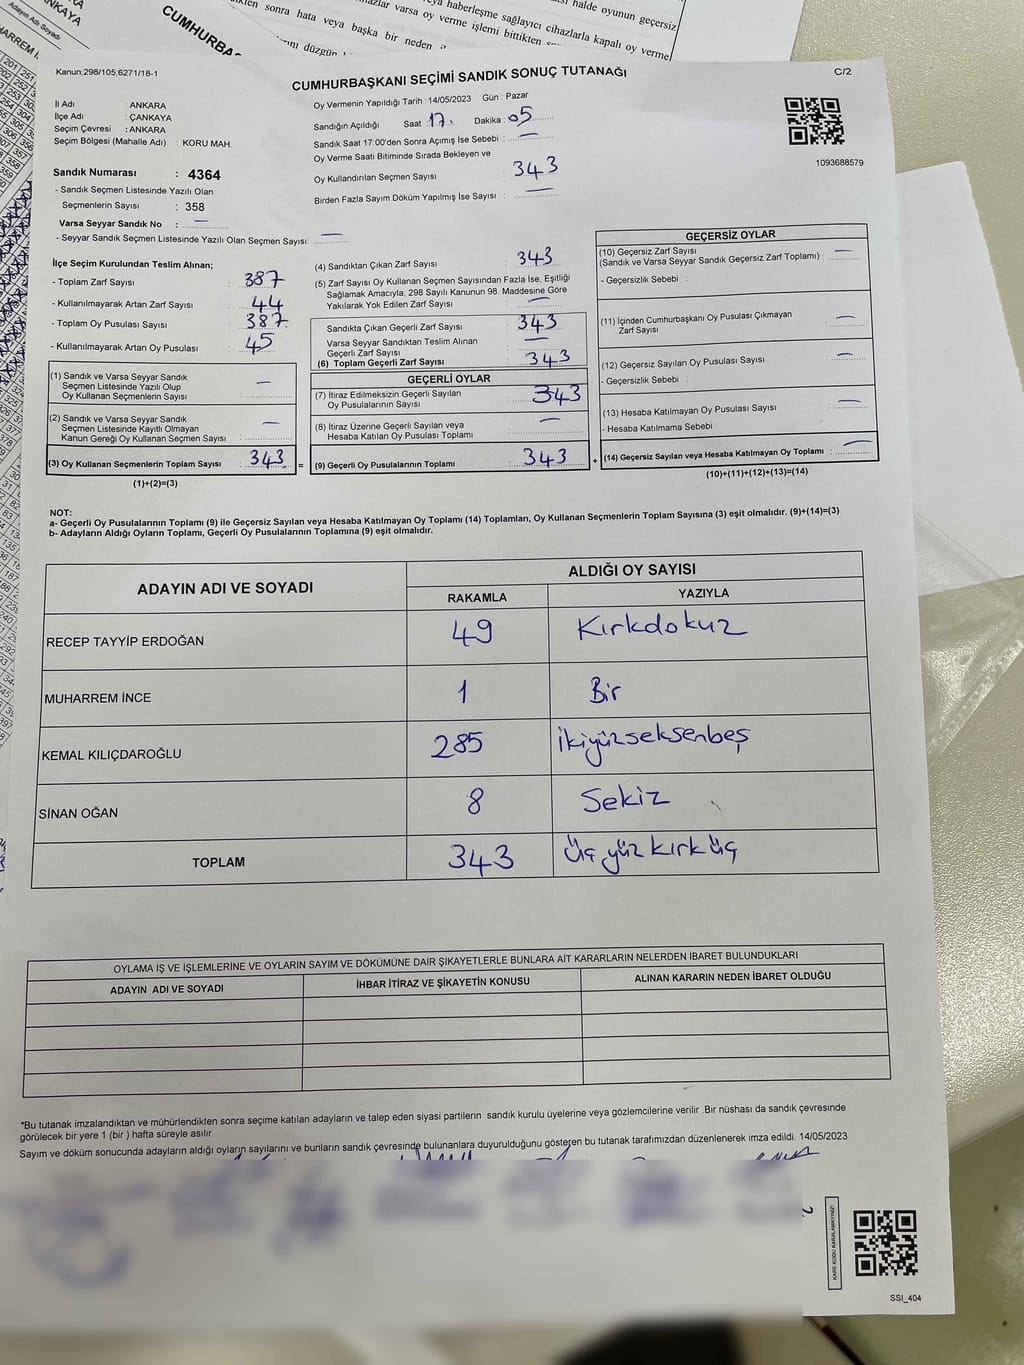 CUMHURBAŞKANI SEÇİMİ SANDIK SONUÇ TUTANAĞI
Kanun;298/105;6271/18-1
C/2
İl Adı : ANKARA
İlçe Adı : ÇANKAYA
Seçim Çevresi : ANKARA
Seçim Bölgesi (Mahalle Adı) : KORU MAH.
Sandık Numarası : 4364
- Sandık Seçmen Listesinde Yazılı Olan
Seçmenlerin Sayısı : 358
Varsa Seyyar Sandık No : —
- Seyyar Sandık Seçmen Listesinde Yazılı Olan Seçmen Sayısı: —
Oy Vermenin Yapıldığı Tarih : 14/05/2023 Gün : Pazar
Sandığın Açıldığı Saat 17. Dakika : 05
Sandık Saat 17:00'den Sonra Açımış İse Sebebi : —
Oy Verme Saati Bitiminde Sırada Bekleyen ve
Oy Kullandırılan Seçmen Sayısı : 343
Birden Fazla Sayım Döküm Yapılmış İse Sayısı : —
1093688579
İlçe Seçim Kurulundan Teslim Alınan;
- Toplam Zarf Sayısı : 387
- Kullanılmayarak Artan Zarf Sayısı : 44
- Toplam Oy Pusulası Sayısı : 387
- Kullanılmayarak Artan Oy Pusulası : 45
(1) Sandık ve Varsa Seyyar Sandık
Seçmen Listesinde Yazılı Olup
Oy Kullanan Seçmenlerin Sayısı : —
(2) Sandık ve Varsa Seyyar Sandık
Seçmen Listesinde Kayıtlı Olmayan
Kanun Gereği Oy Kullanan Seçmen Sayısı : —
(3) Oy Kullanan Seçmenlerin Toplam Sayısı : 343 =
(1)+(2)=(3)
(4) Sandıktan Çıkan Zarf Sayısı : 343
(5) Zarf Sayısı Oy Kullanan Seçmen Sayısından Fazla İse, Eşitliği
Sağlamak Amacıyla; 298 Sayılı Kanunun 98. Maddesine Göre
Yakılarak Yok Edilen Zarf Sayısı : —
Sandıkta Çıkan Geçerli Zarf Sayısı : 343
Varsa Seyyar Sandıktan Teslim Alınan
Geçerli Zarf Sayısı : —
(6) Toplam Geçerli Zarf Sayısı : 343
GEÇERLİ OYLAR
(7) İtiraz Edilmeksizin Geçerli Sayılan
Oy Pusulalarının Sayısı : 343
(8) İtiraz Üzerine Geçerli Sayılan veya
Hesaba Katılan Oy Pusulası Toplamı : —
(9) Geçerli Oy Pusulalarının Toplamı : 343 +
GEÇERSİZ OYLAR
(10) Geçersiz Zarf Sayısı
(Sandık ve Varsa Seyyar Sandık Geçersiz Zarf Toplamı) : —
- Geçersizlik Sebebi :
(11) İçinden Cumhurbaşkanı Oy Pusulası Çıkmayan
Zarf Sayısı : —
(12) Geçersiz Sayılan Oy Pusulası Sayısı : —
- Geçersizlik Sebebi :
(13) Hesaba Katılmayan Oy Pusulası Sayısı : —
- Hesaba Katılmama Sebebi :
(14) Geçersiz Sayılan veya Hesaba Katılmayan Oy Toplamı : —
(10)+(11)+(12)+(13)=(14)
NOT:
a- Geçerli Oy Pusulalarının Toplamı (9) ile Geçersiz Sayılan veya Hesaba Katılmayan Oy Toplamı (14) Toplamları, Oy Kullanan Seçmenlerin Toplam Sayısına (3) eşit olmalıdır. (9)+(14)=(3)
b- Adayların Aldığı Oyların Toplamı, Geçerli Oy Pusulalarının Toplamına (9) eşit olmalıdır.
ADAYIN ADI VE SOYADI ALDIĞI OY SAYISI
RAKAMLA YAZIYLA
RECEP TAYYİP ERDOĞAN 49 Kırkdokuz
MUHARREM İNCE 1 Bir
KEMAL KILIÇDAROĞLU 285 İkiyüzseksenbeş
SİNAN OĞAN 8 Sekiz
TOPLAM 343 Üçyüzkırküç
OYLAMA İŞ VE İŞLEMLERİNE VE OYLARIN SAYIM VE DÖKÜMÜNE DAİR ŞİKAYETLERLE BUNLARA AİT KARARLARIN NELERDEN İBARET BULUNDUKLARI
ADAYIN ADI VE SOYADI İHBAR İTİRAZ VE ŞİKAYETİN KONUSU ALINAN KARARIN NEDEN İBARET OLDUĞU
*Bu tutanak imzalandıktan ve mühürlendikten sonra seçime katılan adayların ve talep eden siyasi partilerin sandık kurulu üyelerine veya gözlemcilerine verilir .Bir nüshası da sandık çevresinde
görülecek bir yere 1 (bir ) hafta süreyle asılır.
Sayım ve döküm sonucunda adayların aldığı oyların sayılarını ve bunların sandık çevresinde bulunanlara duyurulduğunu gösteren bu tutanak tarafımızdan düzenlenerek imza edildi. 14/05/2023
KARE KODU KARALAMAYINIZ!
SSI_404